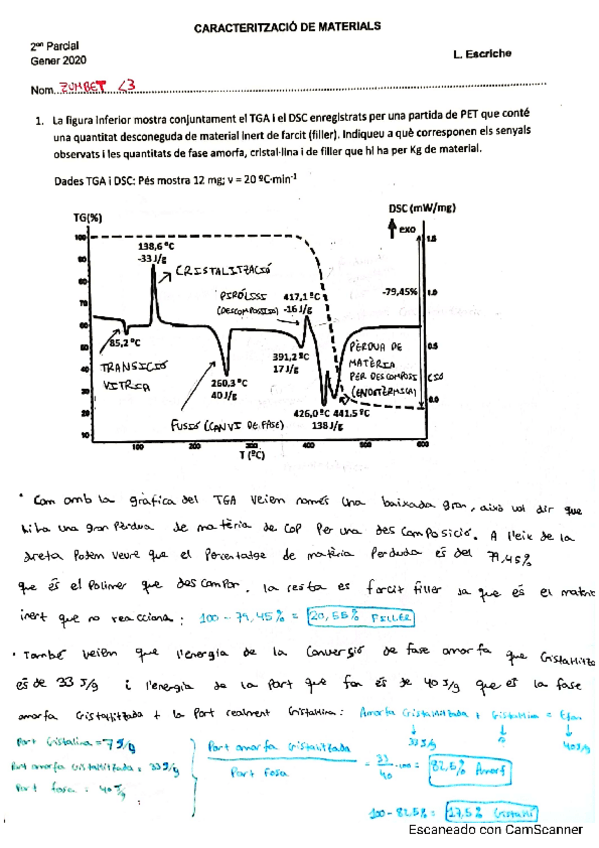 CARACTERITZACIÓ DE MATERIALS
2on Parcial
Gener 2020
L. Escriche
Nom. ZUMBET <3
1. La figura inferior mostra conjuntament el TGA i el DSC enregistrats per una partida de PET que conté
una quantitat desconeguda de material inert de farcit (filler). Indiqueu a què corresponen els senyals
observats i les quantitats de fase amorfa, cristal·lina i de filler que hi ha per Kg de material.
Dades TGA i DSC: Pés mostra 12 mg; v = 20 ºC·min-1
TG(%)
DSC (mW/mg)
exo
100
90
80
70
60
50
40
30
20
10
1.5
1.0
0.5
0.0
138,6 ºC
-33 J/g
CRISTALITZACIÓ
PIRÒLISI
(DESCOMPOSICIÓ)
417,1 ºC
-16 J/g
-79,45%
85,2 ºC
TRANSICIÓ
VITRIA
260,3 ºC
40 J/g
FUSIÓ (CANVI DE FASE)
391,2 ºC
17 J/g
PÈRDUA DE
MATÈRIA
PER DESCOMPOSICIÓ
(ENDOTÈRMICA)
426,0 ºC 441.5 ºC
138 J/g
100 200 300 400 500 600
T (ºC)
· Com amb la gràfica del TGA veiem només una baixada gran, això vol dir que
hi ha una gran pèrdua de matèria de cop per una descomposició. A l'eix de la
dreta podem veure que el percentatge de matèria perduda és del 79,45%
que és el polímer que descompon. la resta es farcit filler ja que és el material
inert que no reacciona: 100 - 79,45% = 20,55% FILLER
· També veiem que l'energia de la conversió de fase amorfa que cristallitza
és de 33 J/g i l'energia de la part que fon és de 40 J/g que és la fase
amorfa cristallitzada + la part realment cristallina: Amorfa cristallitzada + cristallina =
33 J/g
40 J/g
Part cristalina = 7 J/g
Part amorfa cristallitzada = 33 J/g
Part fosa = 40 J/g
Part amorfa cristallitzada
Part fosa
= 33/40 · 100 = 82,5% Amorf
100 - 82,5% = 17,5% cristallí
Escaneado con CamScanner